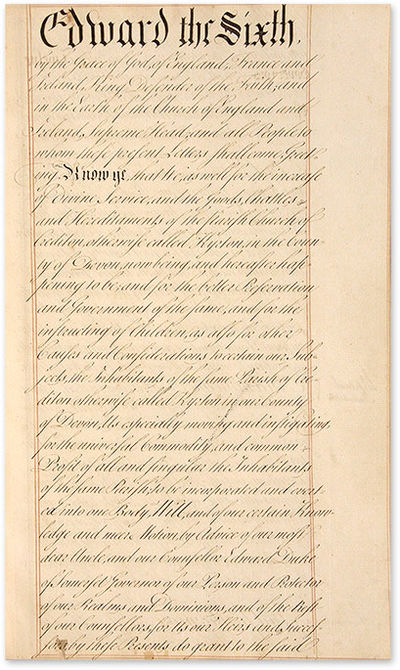 Edward the Sixth,
by the Grace of God, of England, France and
Ireland, King, Defender of the Faith, and
in the Earth of the Church of England and
Ireland, Supreme Head, and all People to
whom these present Letters shall come, Greet-
ing. Know ye, that We, as well for the increase
of Divine Service, and the Goods, Chattles
and Hereditaments of the Parish Church of
Crediton, otherwise called Kyrton, in the Coun-
ty of Devon, now being, and hereafter hap-
pening to be, and for the better Preservation
and Government of the same, and for the
instructing of Children, as also for other
Causes and Considerations to certain our Sub-
jects, the Inhabitants of the same Parish of Cre-
diton otherwise called Kyrton in our County
of Devon, Us especially moving and instigating
for the universal Commodity, and common
Profit of all and singular the Inhabitants
of the same Parish, to be incorporated and erect-
ed into one Body, Will, and of our certain Know-
ledge and meer Motion, by Advice of our most
dear Uncle, and our Counsellor Edward Duke
of Somerset Governor of our Person and Protector
of our Realms and Dominions, and of the Rest
of our Counsellors, for Us our Heirs and Succes-
sors by these Presents do grant to the said